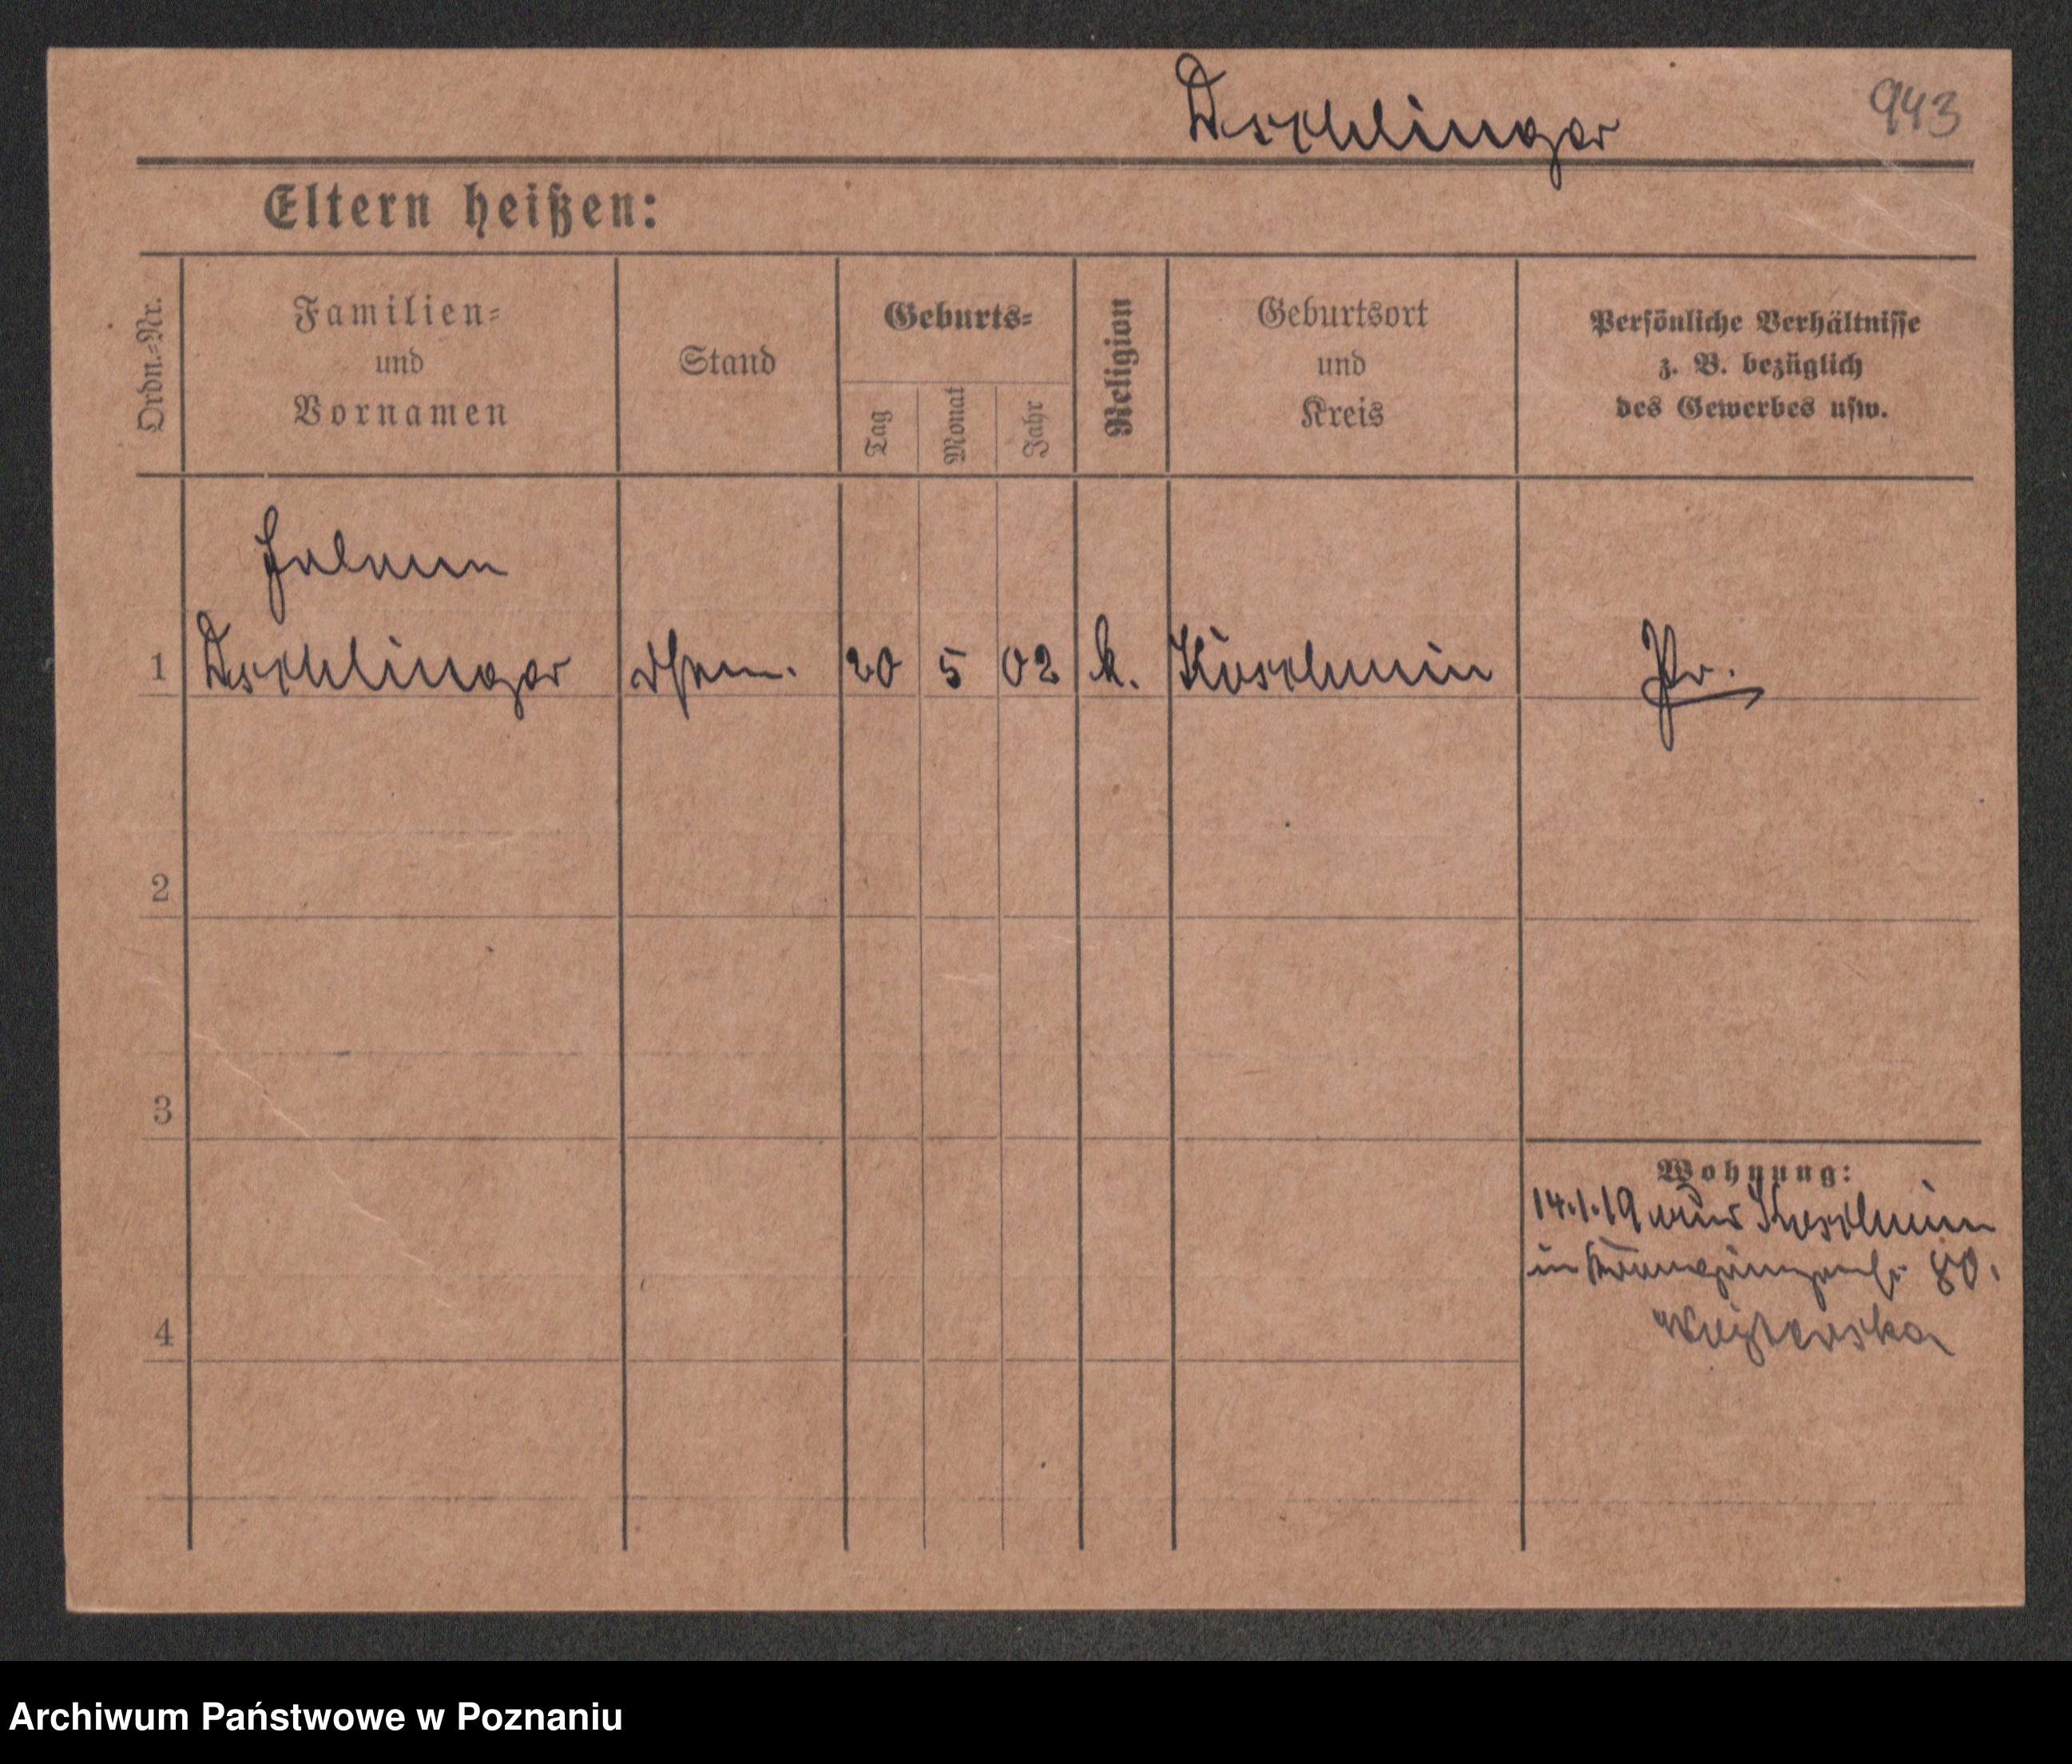 943
Eltern heißen:
Ordn.-Nr.
Familien-
und
Vornamen
Stand
Geburts-
Tag
Monat
Jahr
Religion
Geburtsort
und
Kreis
Persönliche Verhältnisse
z. B. bezüglich
des Gewerbes usw.
1
20
5
02
k.
Koschmin
Pr.
2
3
Wohnung:
14.1.19 aus Koschmin
in 80.
4
Archiwum Państwowe w Poznaniu